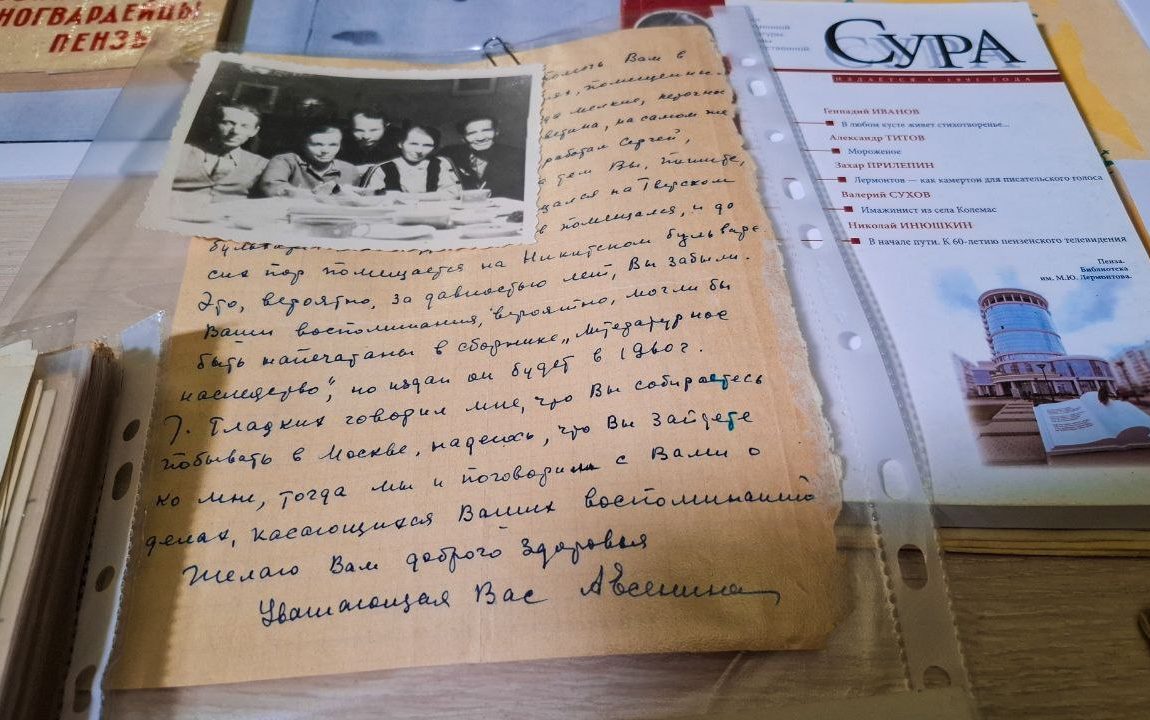 НОГВАРДЕЙЦЫ
ПЕНЗЫ
помочь Вам в
помещенны
да мелкие, неточны
на самом же
работал Сергей,
тем Вы, пишите,
щался на Тверском
бульваре
в помещался, и до
сих пор помещается на Никитском бульваре
Это, вероятно, за давностью лет, Вы забыли.
Ваши воспоминания, вероятно, могли бы
быть напечатаны в сборнике „Литературное
наследство", но издан он будет в
Т. Гладких говорил мне, что Вы собираетесь
побывать в Москве, надеюсь, что Вы зайдете
ко мне, тогда мы и поговорим с Вами о
делах, касающихся Ваших воспоминаний
Желаю Вам доброго здоровья
Уважающая Вас Авсенина
СУРА
ИЗДАЁТСЯ С 1991 ГОДА
Геннадий ИВАНОВ
В любом кусте живет стихотворенье...
Александр ТИТОВ
Мороженое
Захар ПРИЛЕПИН
Лермонтов — как камертон для писательского голоса
Валерий СУХОВ
Имажинист из села Колемас
Николай ИНЮШКИН
В начале пути. К 60-летию пензенского телевидения
Пенза.
Библиотека
им. М.Ю. Лермонтова.